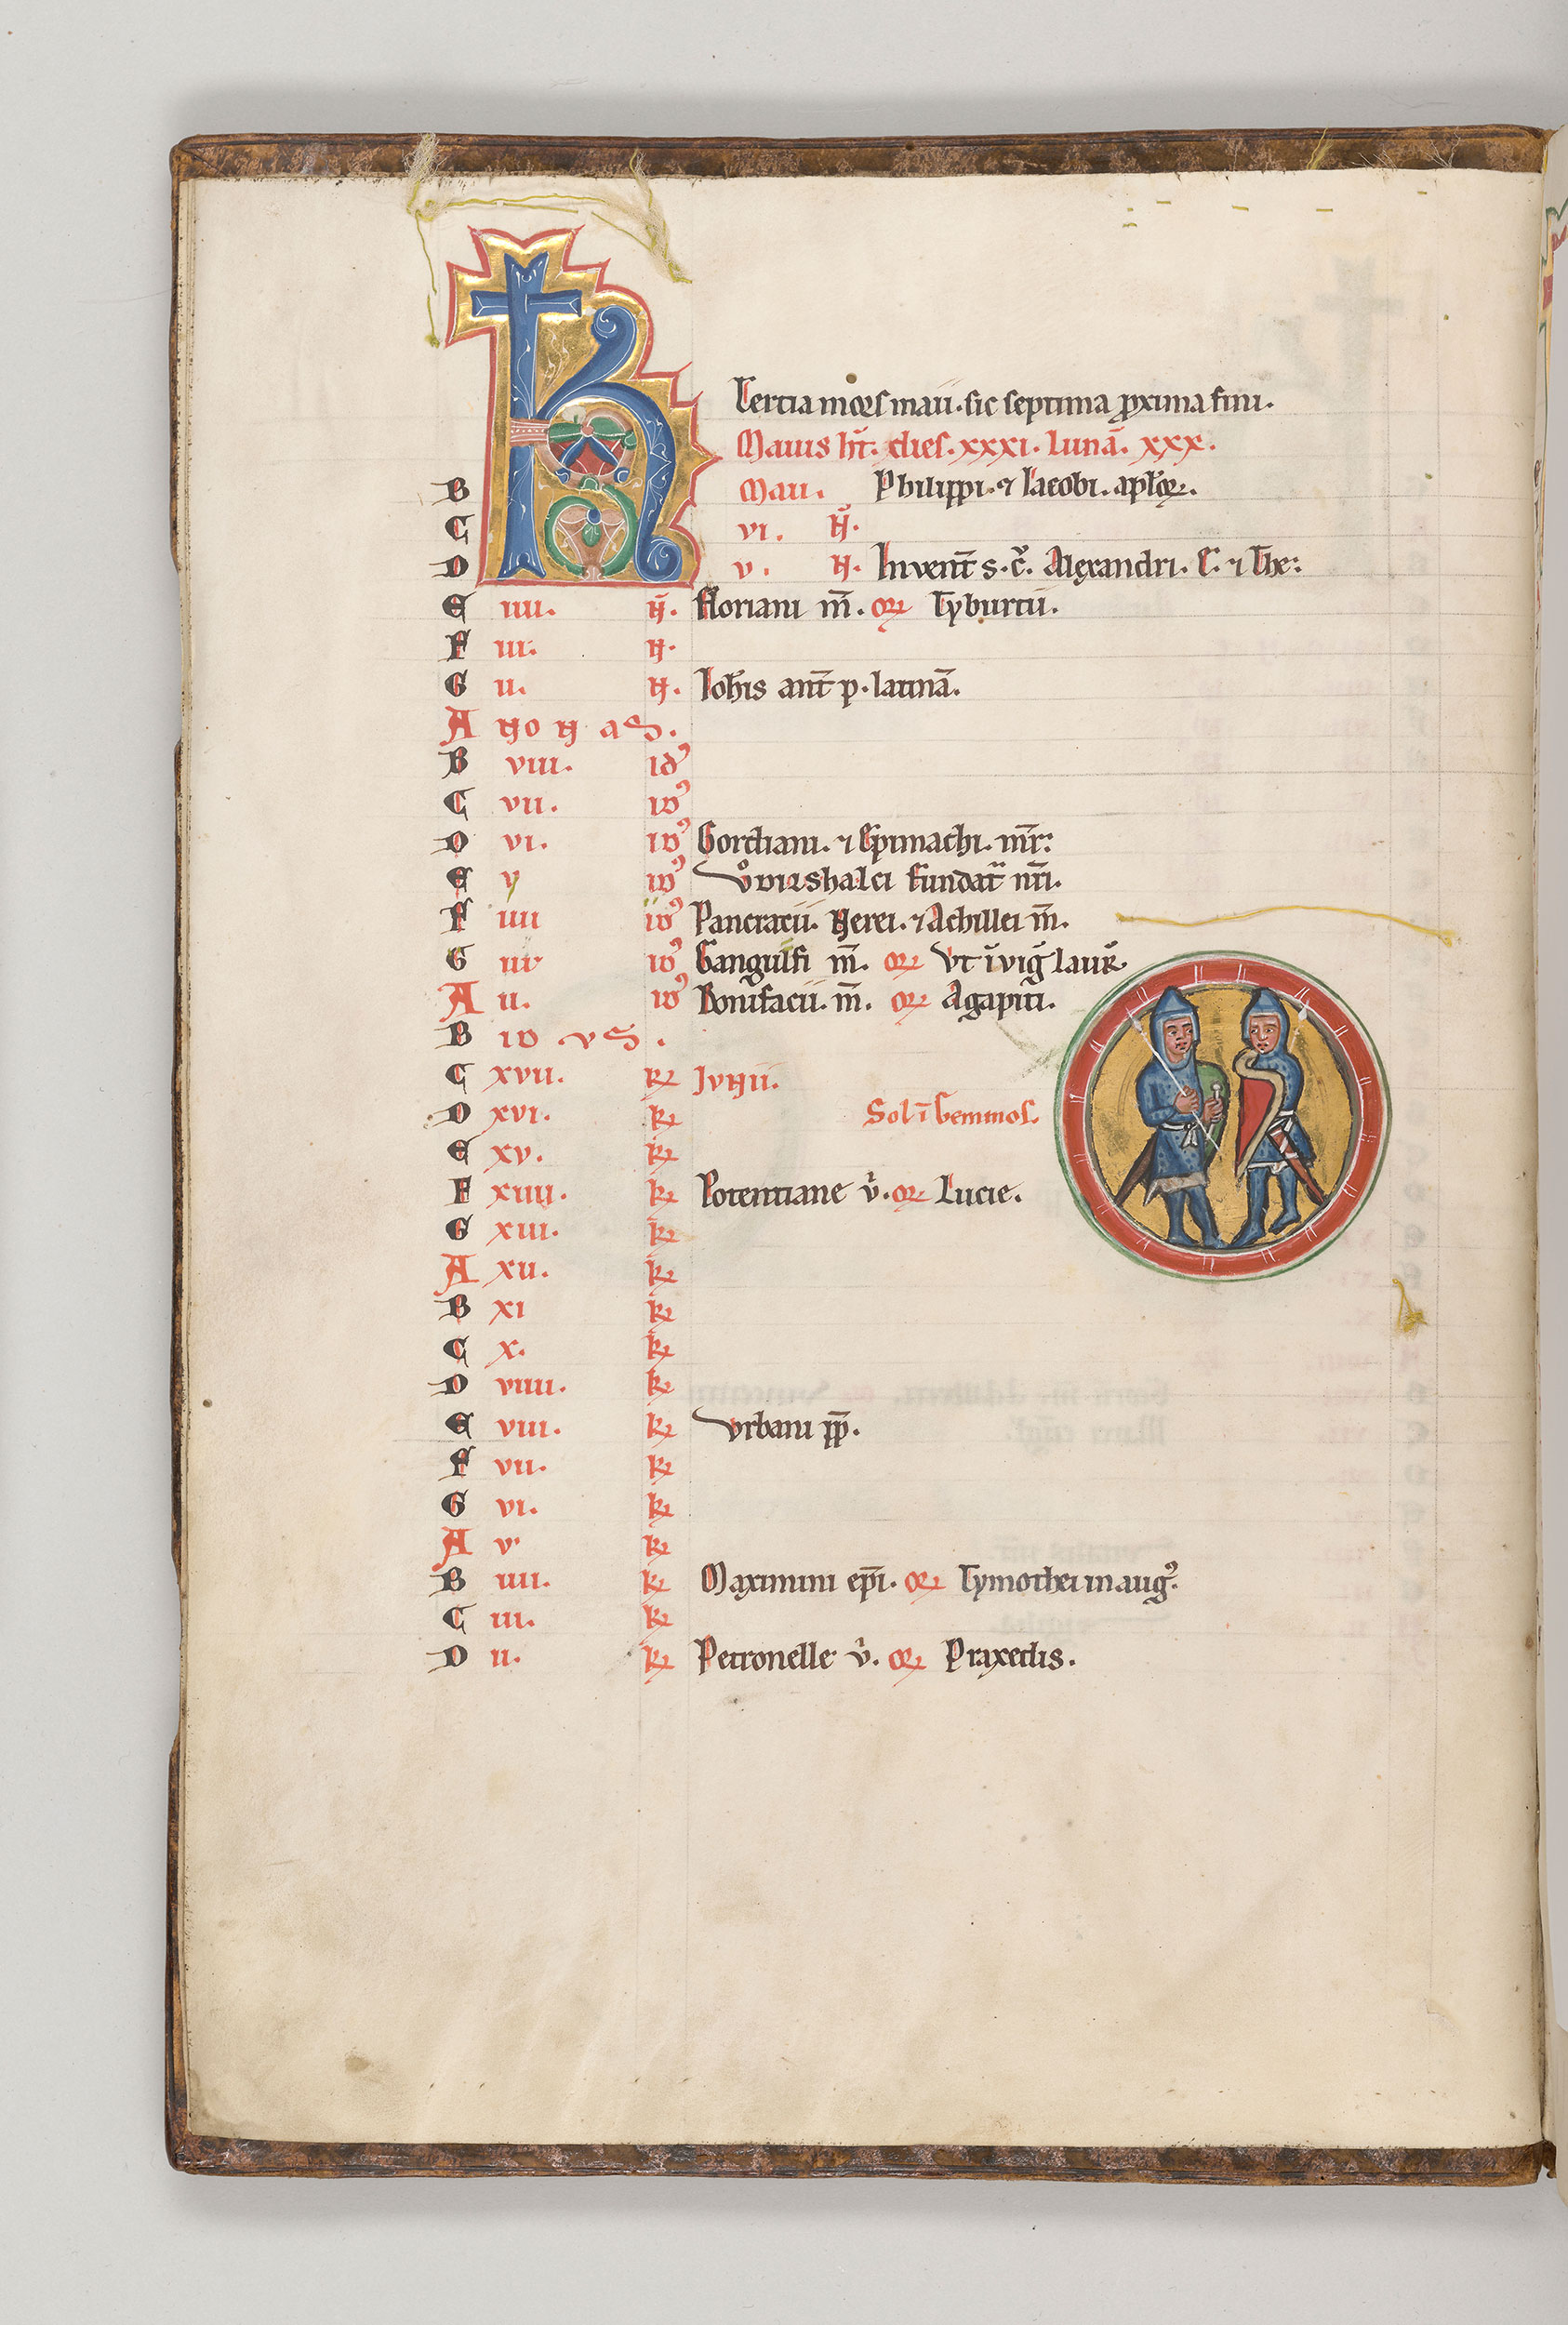 KL
Tertia mors maii. sic septima proxima fini.
Maius ht̄. dies. xxxi. Lunā. xxx.
B Maii. Philippi. ⁊ Iacobi. apl'oꝝ.
C vi. N̄.
D v. N. Invent̄ s. c̄. Alexandri. E. ⁊ The:
E iiii. N̄. Floriani m̄. oꝝ Tyburtii.
F iii. N.
G ii. N. Ioh̄is ant̄ p. latinā.
A NONAS.
B viii. idꝰ
C vii. idꝰ
D vi. idꝰ Gordiani. ⁊ Epimachi. mr̄:
E v idꝰ fundat̄ nr̄i.
F iiii idꝰ Pancracii. Nerei. ⁊ Achillei m̄.
G iii idꝰ Gangulfi m̄. oꝝ Vt ī viḡ laur̄
A ii. idꝰ Bonifacii. m̄. oꝝ Agapiti.
B IDVS.
C xvii. kꝉ Ivnii.
D xvi. kꝉ Sol ī Gemmos.
E xv. kꝉ
F xiiii. kꝉ Potentiane v̄. oꝝ Lucie.
G xiii. kꝉ
A xii. kꝉ
B xi kꝉ
C x. kꝉ
D viiii. kꝉ
E viii. kꝉ Vrbani pp̄.
F vii. kꝉ
G vi. kꝉ
A v kꝉ
B iiii. kꝉ Maximini ep̄i. oꝝ Tymothei in augꝰ.
C iii. kꝉ
D ii. kꝉ Petronelle v̄. oꝝ Praxedis.